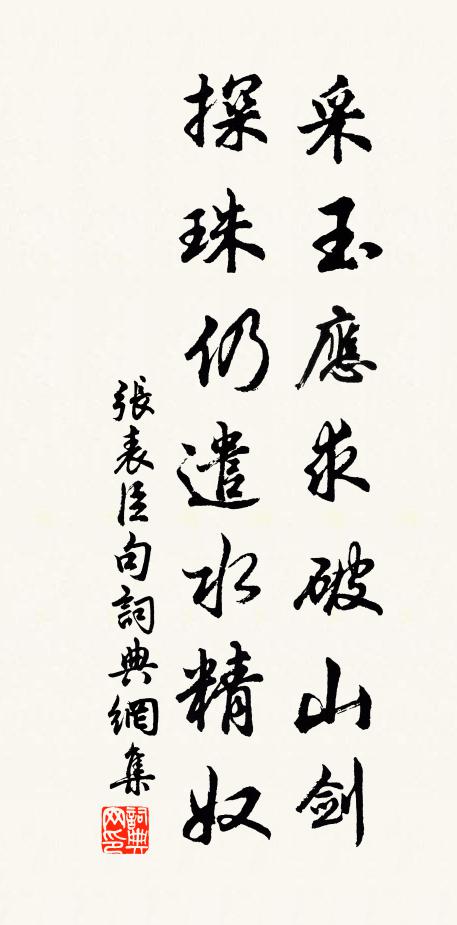 采玉應求破山劍
探珠仍遣水精奴
張表臣句詞典網集
詞典網印